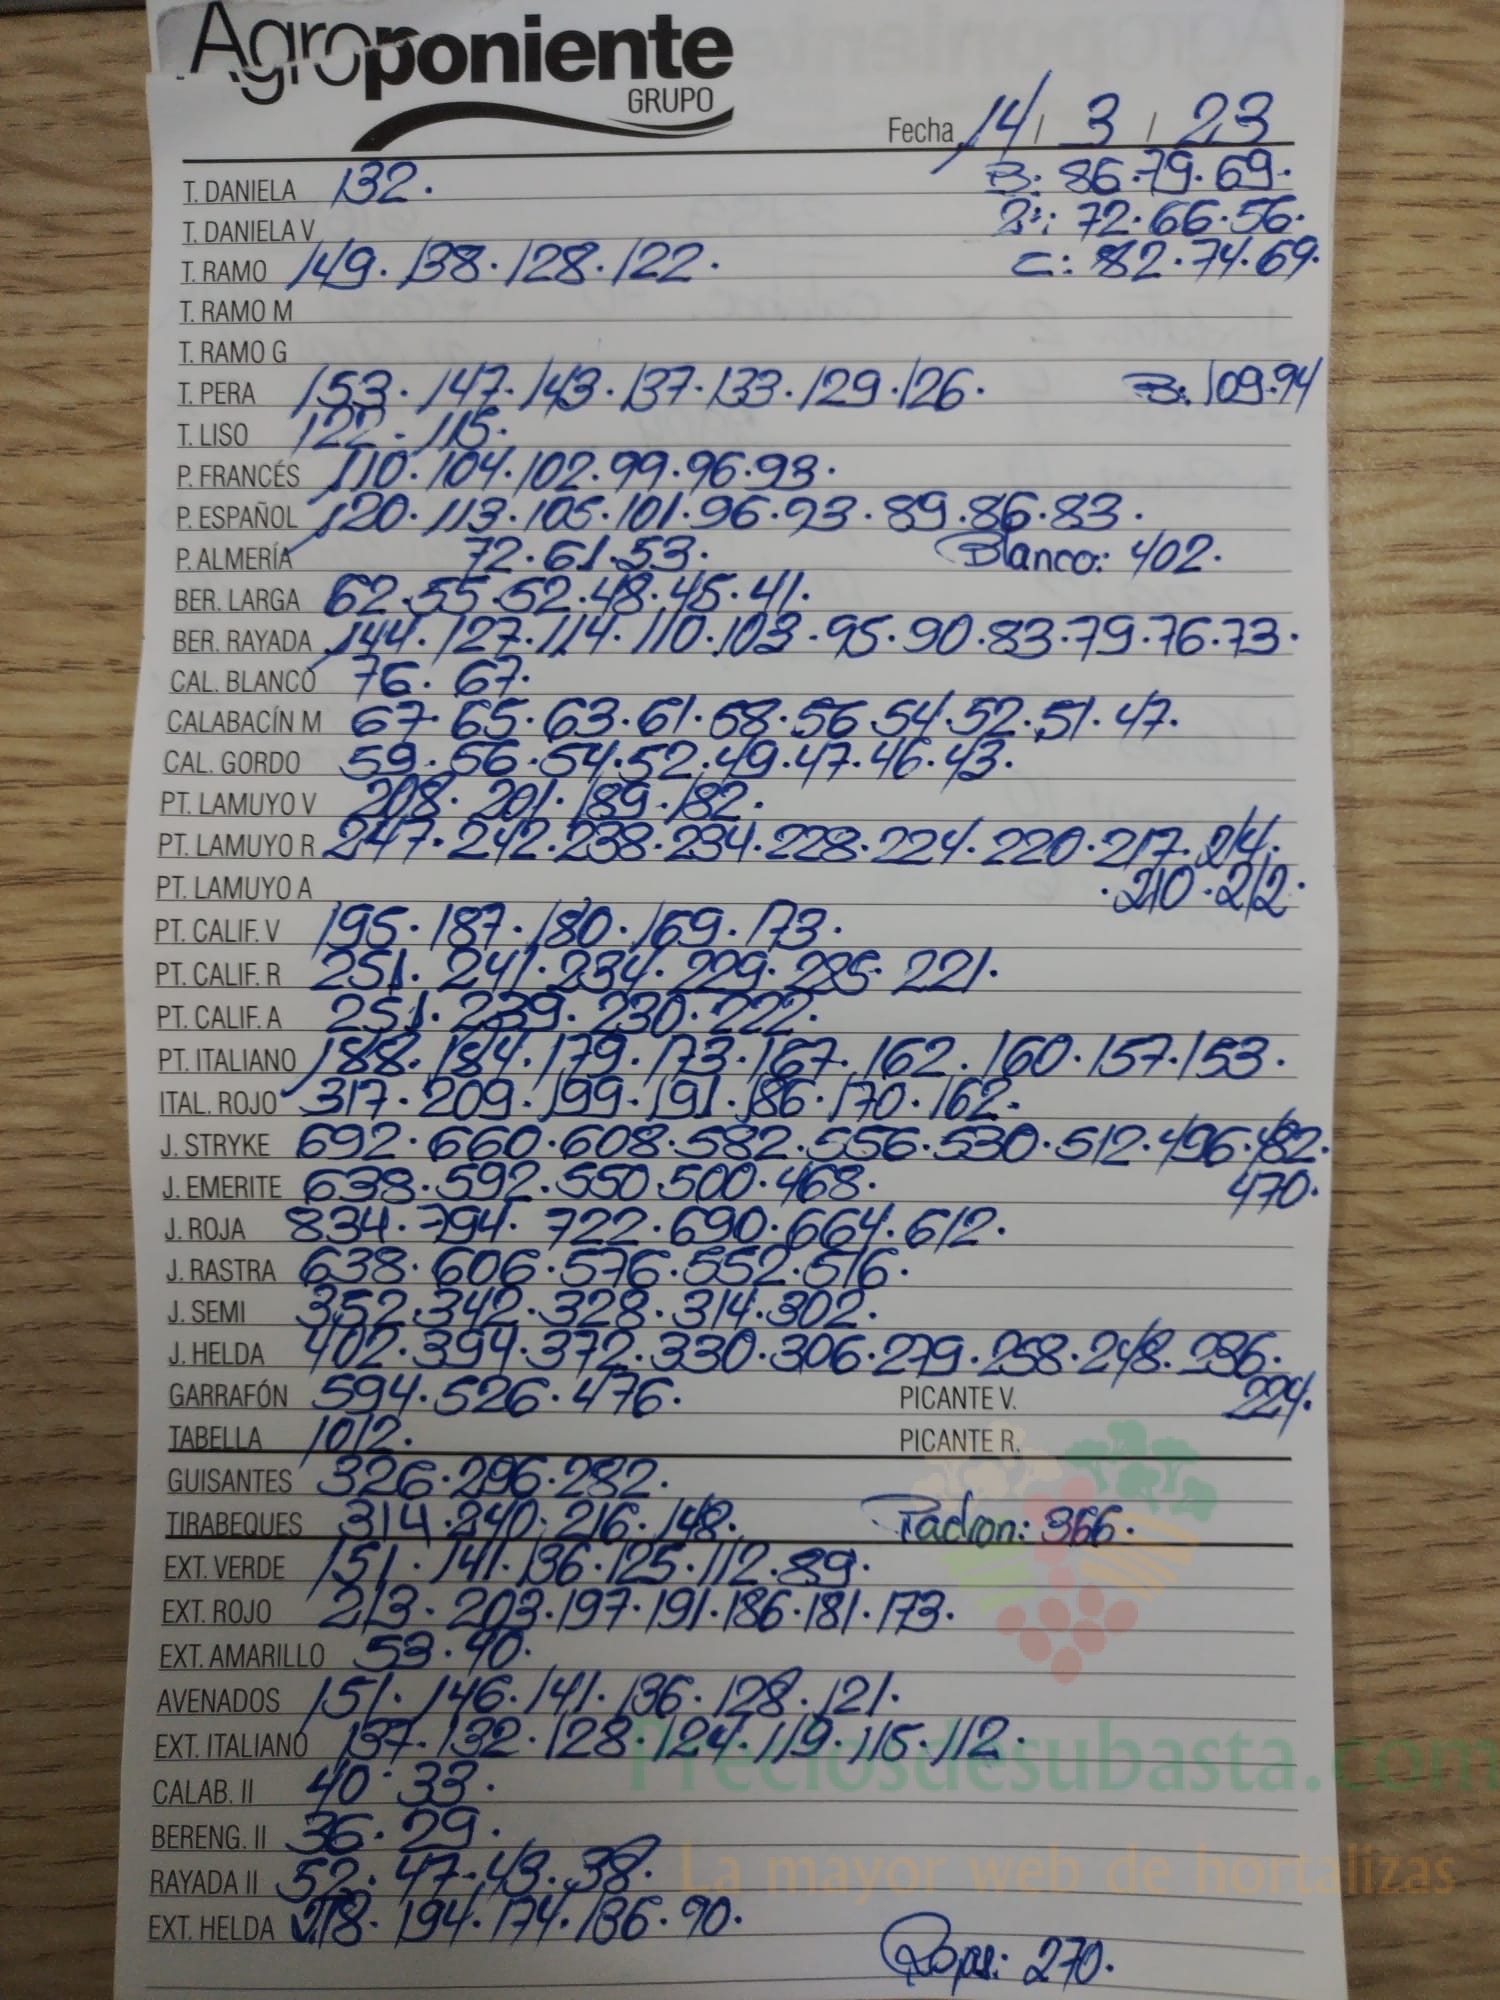 Agroponiente
GRUPO
Fecha 14 / 3 / 23
T. DANIELA 132. B: 86.79.69.
T. DANIELA V 2ª: 72.66.56.
T. RAMO 149.138.128.122. C: 82.74.69.
T. RAMO M
T. RAMO G
T. PERA 153.147.143.137.133.129.126. B: 109.94
T. LISO 122.115.
P. FRANCÉS 110.104.102.99.96.93.
P. ESPAÑOL 120.113.105.101.96.93.89.86.83.
P. ALMERÍA 72.61.53. Blanco: 402.
BER. LARGA 62.55.52.48.45.41.
BER. RAYADA 144.127.114.110.103.95.90.83.79.76.73.
CAL. BLANCO 76.67.
CALABACÍN M 67.65.63.61.58.56.54.52.51.47.
CAL. GORDO 59.56.54.52.49.47.46.43.
PT. LAMUYO V 208.201.189.182.
PT. LAMUYO R 247.242.238.234.228.224.220.217.214.
PT. LAMUYO A .210.212.
PT. CALIF. V 195.187.180.169.173.
PT. CALIF. R 251.241.234.229.225.221.
PT. CALIF. A 251.239.230.222.
PT. ITALIANO 188.184.179.173.167.162.160.157.153.
ITAL. ROJO 317.209.199.191.186.170.162.
J. STRYKE 692.660.608.582.556.530.512.496.482.
J. EMERITE 638.592.550.500.468. 470.
J. ROJA 834.794.722.690.664.612.
J. RASTRA 638.606.576.552.516.
J. SEMI 352.342.328.314.302.
J. HELDA 402.394.372.330.306.279.258.248.236.
GARRAFÓN 594.526.476. PICANTE V. 224.
TABELLA 1012. PICANTE R.
GUISANTES 326.296.282.
TIRABEQUES 314.240.216.148. Padron: 366.
EXT. VERDE 151.141.136.125.112.89.
EXT. ROJO 213.203.197.191.186.181.173.
EXT. AMARILLO 53.40.
AVENADOS 151.146.141.136.128.121.
EXT. ITALIANO 137.132.128.124.119.115.112.
Preciosdesubasta.com
CALAB. II 40.33.
BERENG. II 36.29.
RAYADA II 52.47.43.38.
La mayor web de hortalizas
EXT. HELDA 218.194.174.136.90.
270.